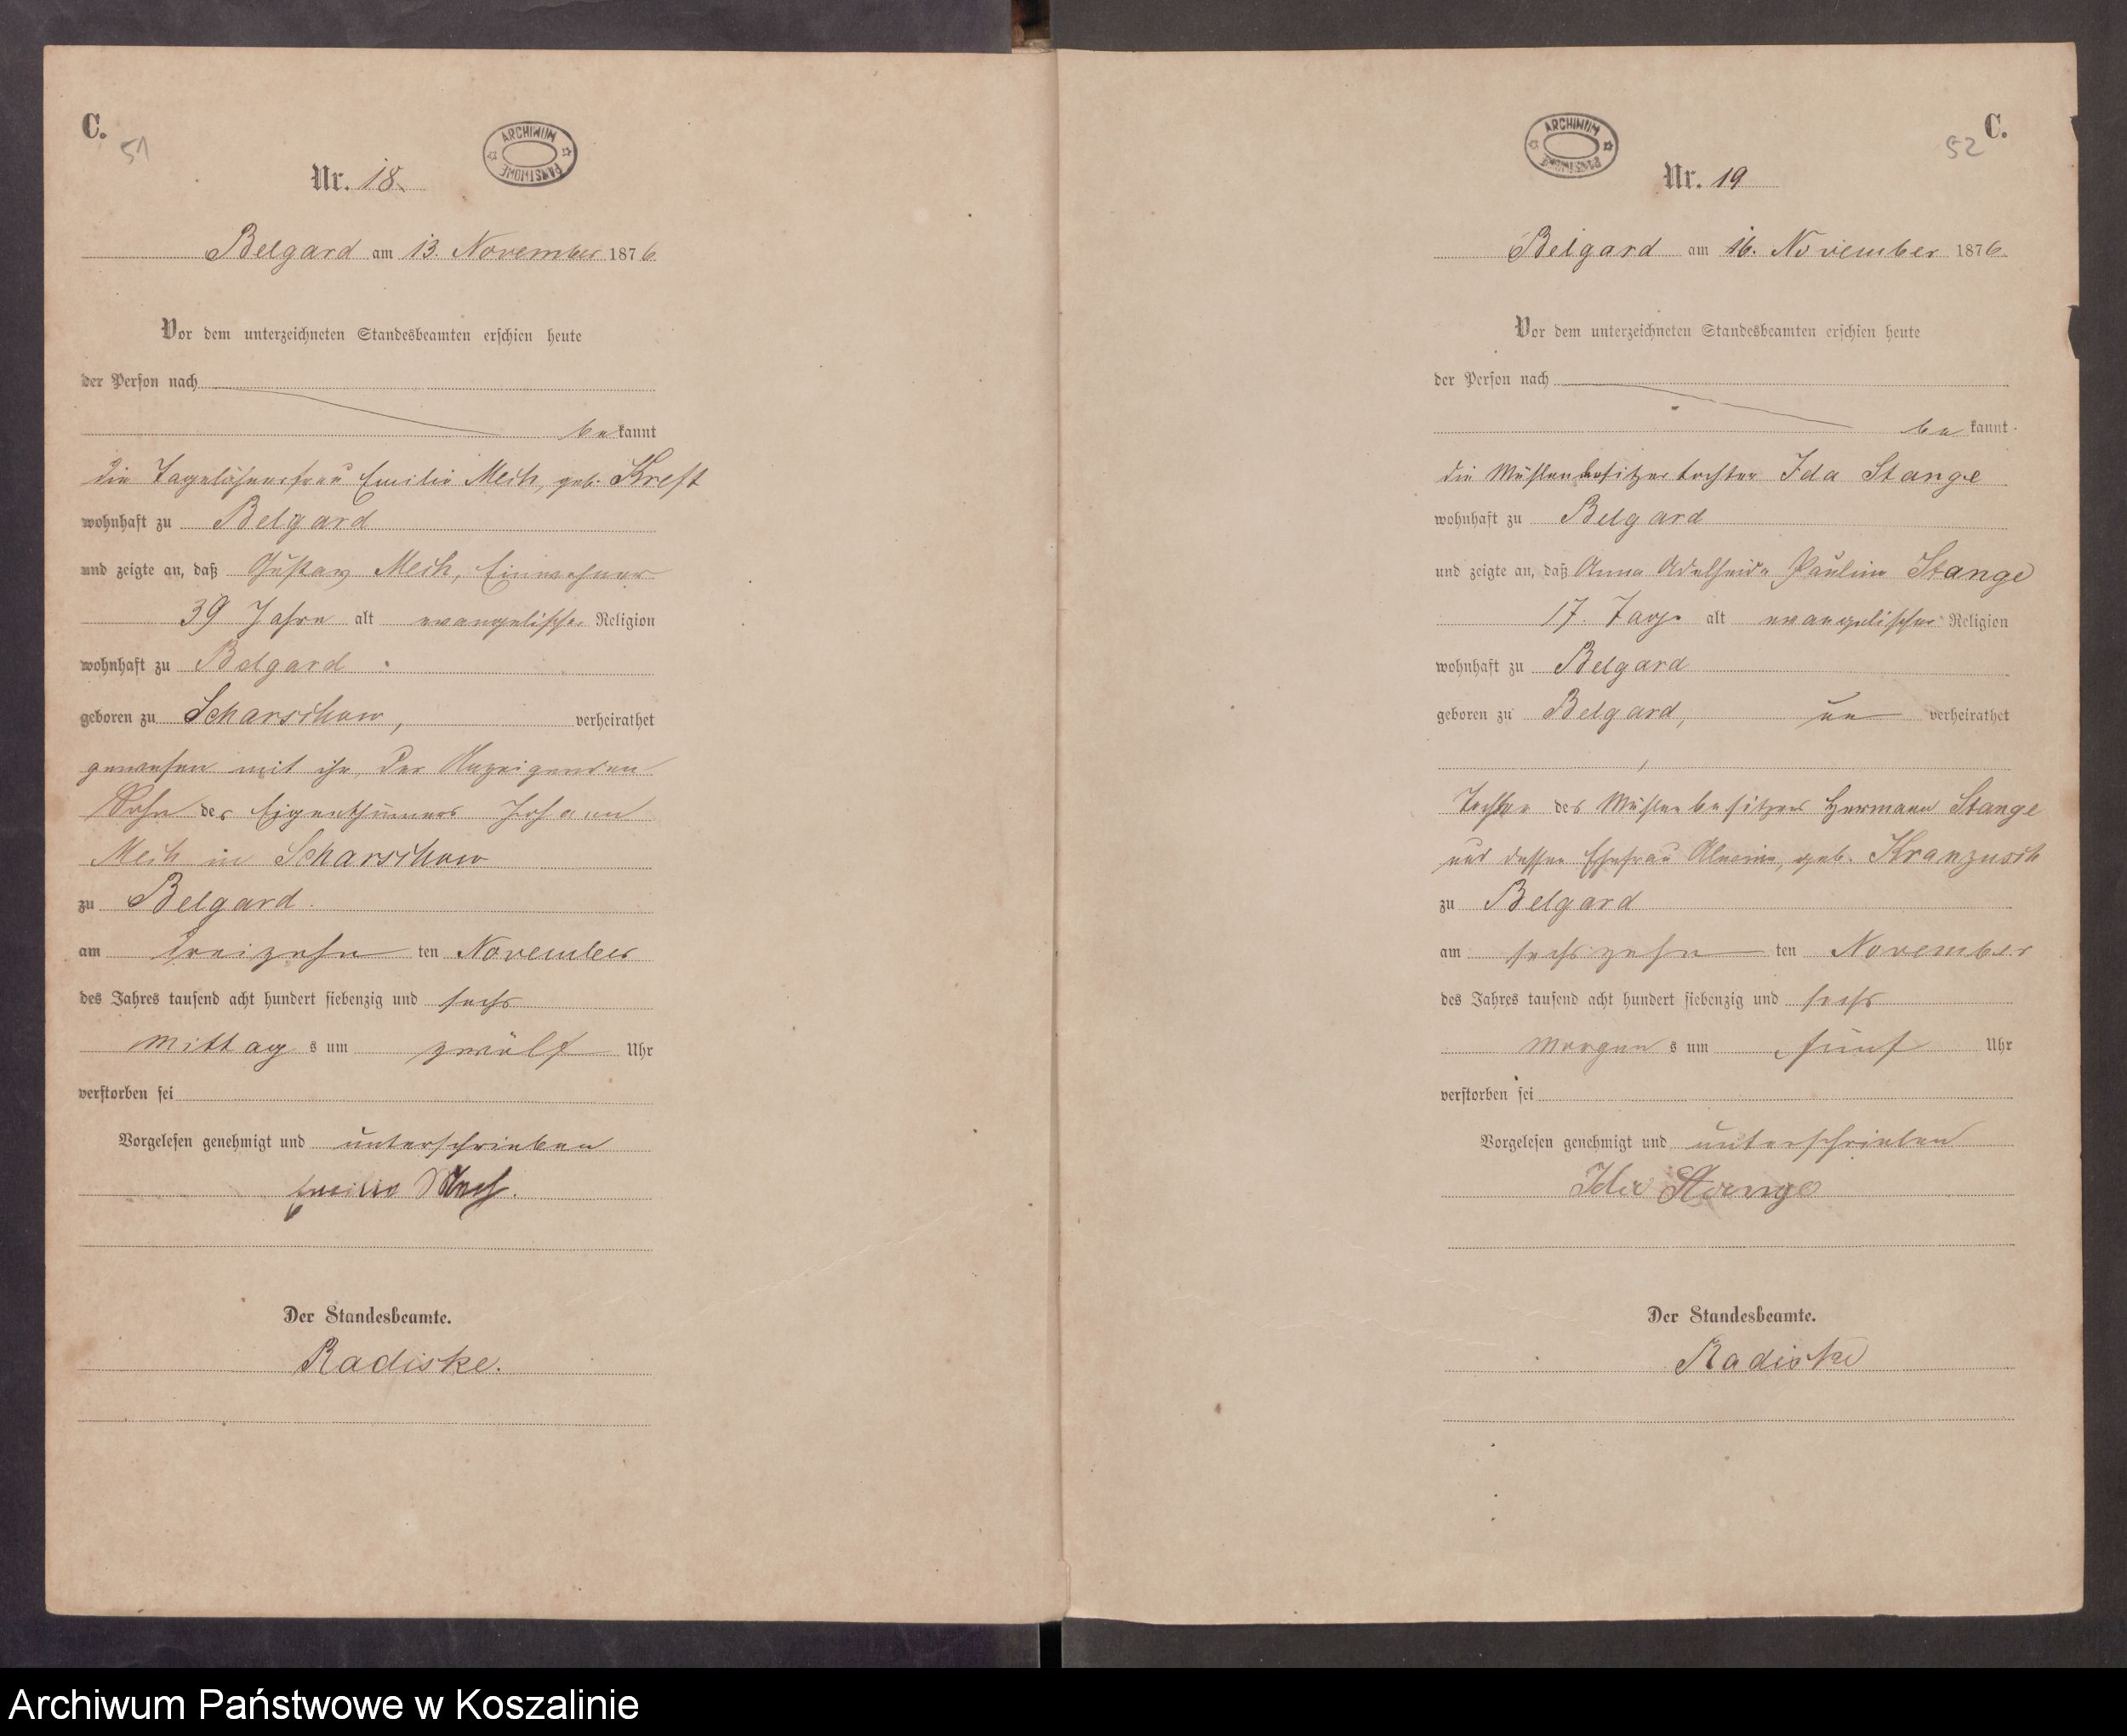 C.
51
ARCHIWUM PAŃSTWOWE
Nr. 18.
Belgard am 13. November 1876.
Vor dem unterzeichneten Standesbeamten erschien heute
der Person nach
bekannt
die Tagelöhnerfrau Emilie Mech, geb. Kreft
wohnhaft zu Belgard
und zeigte an, daß Gustav Mech, Einwohner
39 Jahre alt evangelischer Religion
wohnhaft zu Belgard
geboren zu Scharsihow, verheirathet
gewesen mit ihr, der Anzeigenden
Sohn des Eigenthümers Johann
Mech in Scharsihow
zu Belgard.
am dreizehn ten November
des Jahres tausend acht hundert siebenzig und sechs
Mittag s um zwölf Uhr
verstorben sei
Vorgelesen genehmigt und unterschrieben
Emilie Mech.
Der Standesbeamte.
Radiske.
C.
52
ARCHIWUM PAŃSTWOWE
Nr. 19
Belgard am 16. November 1876.
Vor dem unterzeichneten Standesbeamten erschien heute
der Person nach
bekannt.
die Mühlenbesitzertochter Ida Stange
wohnhaft zu Belgard
und zeigte an, daß Anna Adelheide Pauline Stange
17. Tage alt evangelischer Religion
wohnhaft zu Belgard
geboren zu Belgard, un verheirathet
Tochter des Mühlenbesitzers Hermann Stange
und dessen Ehefrau Alwine, geb. Kranzusch
zu Belgard
am sechszehn ten November
des Jahres tausend acht hundert siebenzig und sechs
Morgen s um fünf Uhr
verstorben sei
Vorgelesen genehmigt und unterschrieben
Ida Stange
Der Standesbeamte.
Radiske
Archiwum Państwowe w Koszalinie